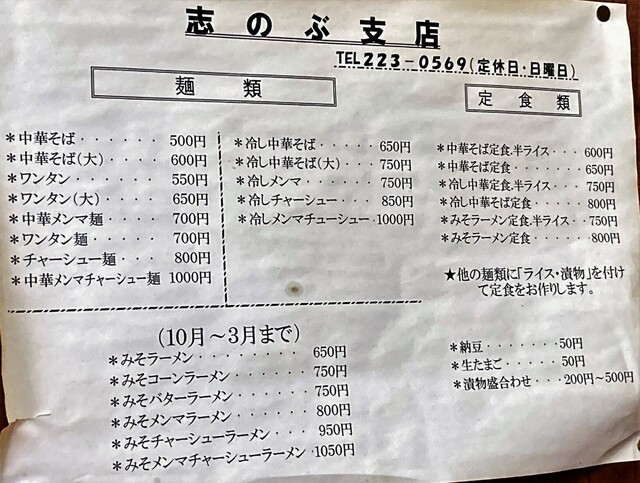 志のぶ支店
TEL223-0569(定休日・日曜日)
麺類
*中華そば・・・・・・500円
*中華そば(大)・・・・600円
*ワンタン・・・・・・550円
*ワンタン(大)・・・・650円
*中華メンマ麺・・・・700円
*ワンタン麺・・・・・700円
*チャーシュー麺・・・800円
*中華メンマチャーシュー麺 1000円
*冷し中華そば・・・・・650円
*冷し中華そば(大)・・・750円
*冷しメンマ・・・・・・750円
*冷しチャーシュー・・・850円
*冷しメンマチューシュー・1000円
定食類
*中華そば定食.半ライス・・・600円
*中華そば定食・・・・・・・650円
*冷し中華定食.半ライス・・・750円
*冷し中華そば定食・・・・・800円
*みそラーメン定食.半ライス・・750円
*みそラーメン定食・・・・・800円
★他の麺類に「ライス・漬物」を付け
て定食をお作りします。
(10月～3月まで)
*みそラーメン・・・・・・・650円
*みそコーンラーメン・・・・750円
*みそバターラーメン・・・・750円
*みそメンマラーメン・・・・800円
*みそチャーシューラーメン・・・950円
*みそメンマチャーシューラーメン・1050円
*納豆・・・・・・・50円
*生たまご・・・・・50円
*漬物盛合わせ・・・200円～500円